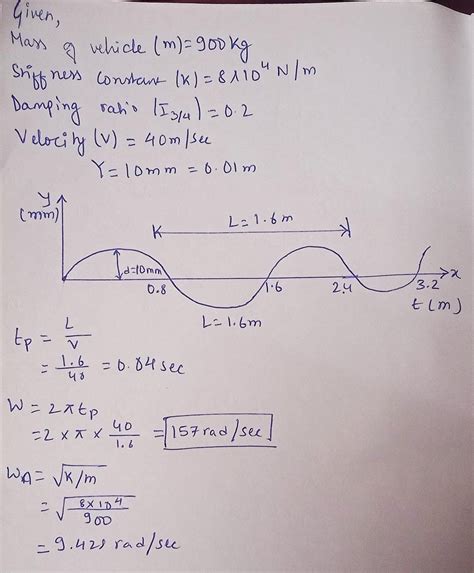 Given,
Mass of vehicle (m)=900kg
Stiffness constant (K)=8×10⁴ N/m
Damping ratio (I3/4)=0.2
Velocity (V) = 40m/sec
Y=10mm = 0.01m
y
(mm)
L=1.6m
d=10mm
0.8
1.6
2.4
3.2
x
t(m)
L=1.6m
tp = L/V
= 1.6/40 = 0.04sec
W = 2πtp
=2×π× 40/1.6 = 157rad/sec
Wn= √K/m
= √8×10⁴/900
= 9.428 rad/sec